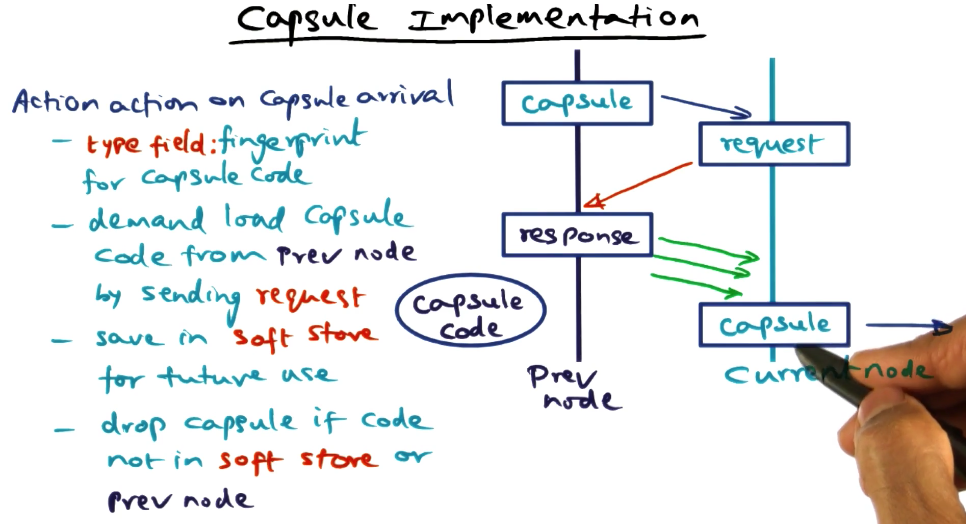 Capsule Implementation
Action action on Capsule arrival
- type field: fingerprint
for capsule code
- demand load Capsule
code from prev node
by sending request
- save in soft store
for future use
- drop capsule if code
not in soft store or
prev node
capsule
request
response
capsule
code
capsule
Prev
node
Current node